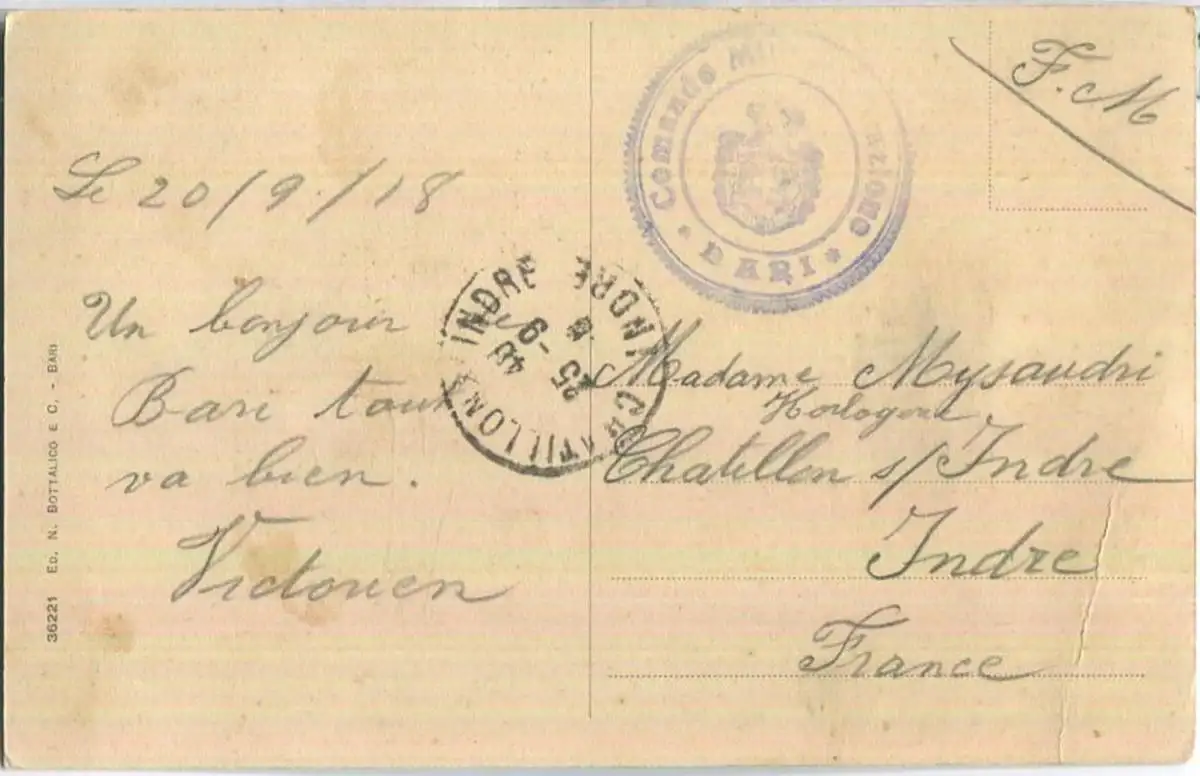 Le 20/9./18
Un bonjour de
Bari tout
va bien.
Victorien
36221 ED. N. BOTTALICO E C. - BARI
F. M
Comando Mi azione
* BARI *
CHATILLON INDRE INDRE
25 -9 18
Madame Mysaudri
Horlogerie
Chatillon s/ Indre
Indre
France